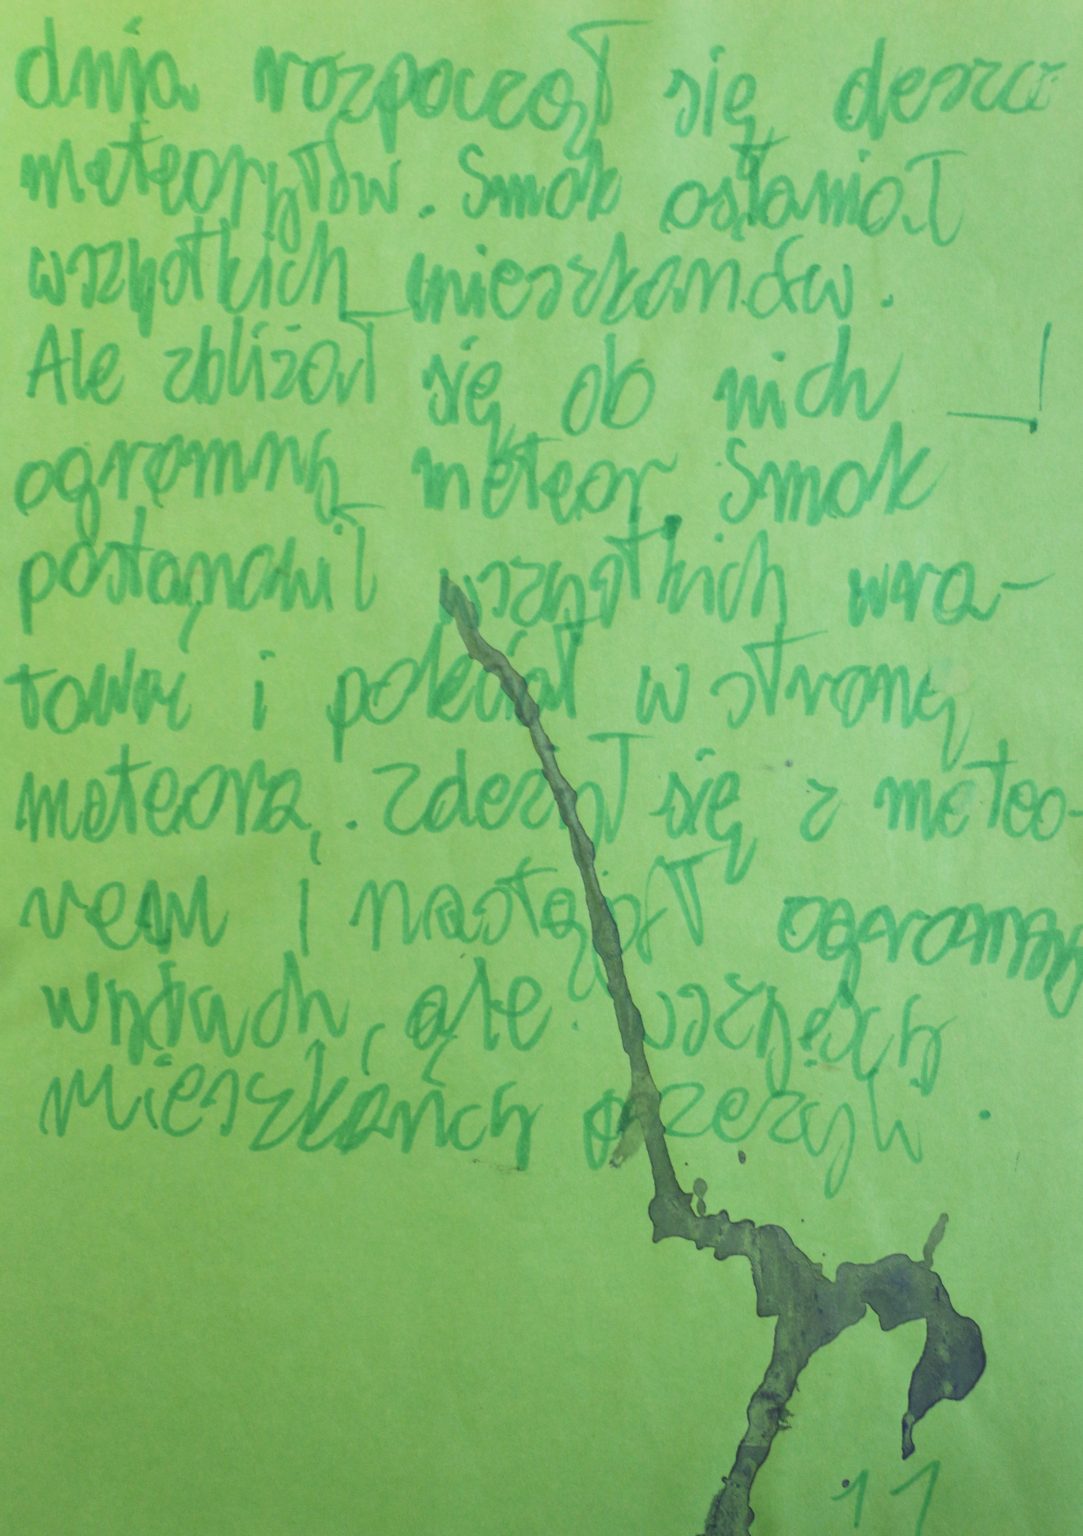 dnia rozpoczął się deszcz
meteorytów. Smok osłaniał
wszystkich mieszkanców.
Ale zbliżał się ob nich
ogromny meteor. Smok
postanowił wszystkich wra-
tować i poleciał w stronę
meteora. Zderzył się z meteo-
rem i nastąpił ogromny
wybuch, ale wszyscy
mieszkańcy przeżyli.
11